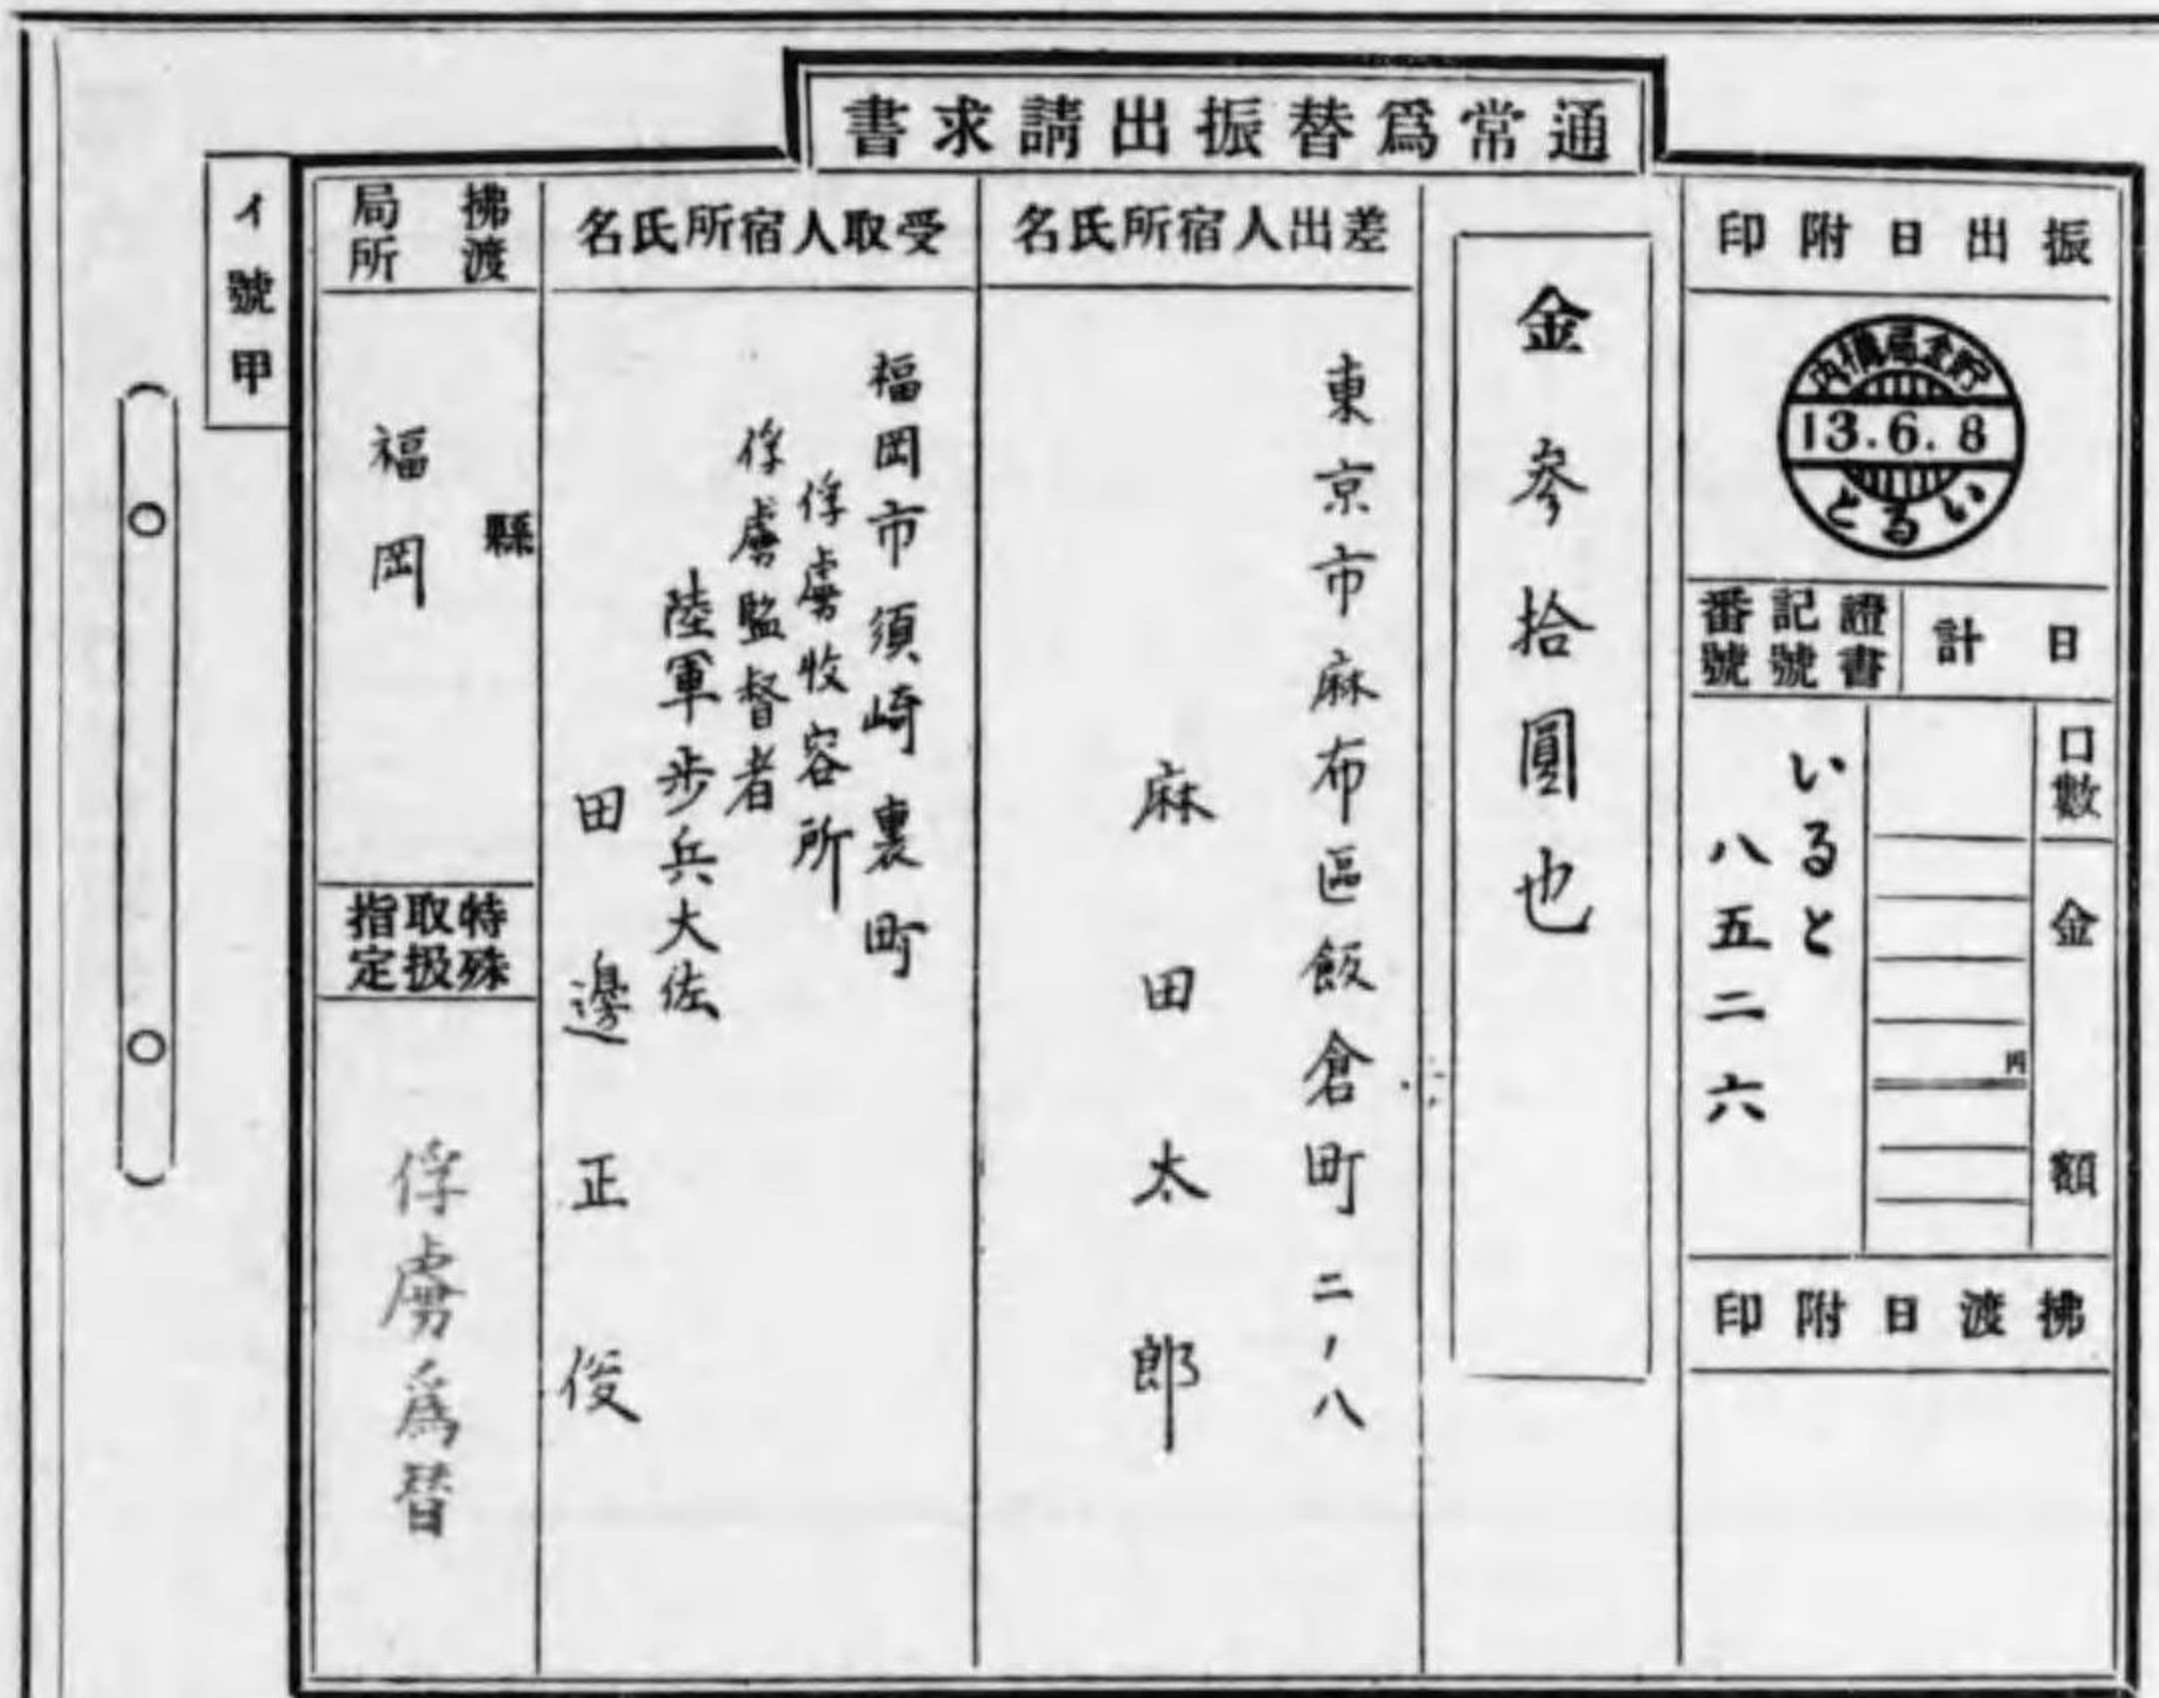 通常爲替振出請求書
振出日附印
貯金局構内
13.6.8
いると
日計
口數
金額
円
證書記號番號
いると
八五二六
拂渡日附印
金參拾圓也
差出人宿所氏名
東京市麻布區飯倉町二ノ八
麻田太郎
受取人宿所氏名
福岡市須崎裏町
俘虜收容所
俘虜監督者
陸軍步兵大佐
田邊正俊
拂渡局所
縣
福岡
特殊取扱指定
俘虜爲替
イ號甲
(○ ○)